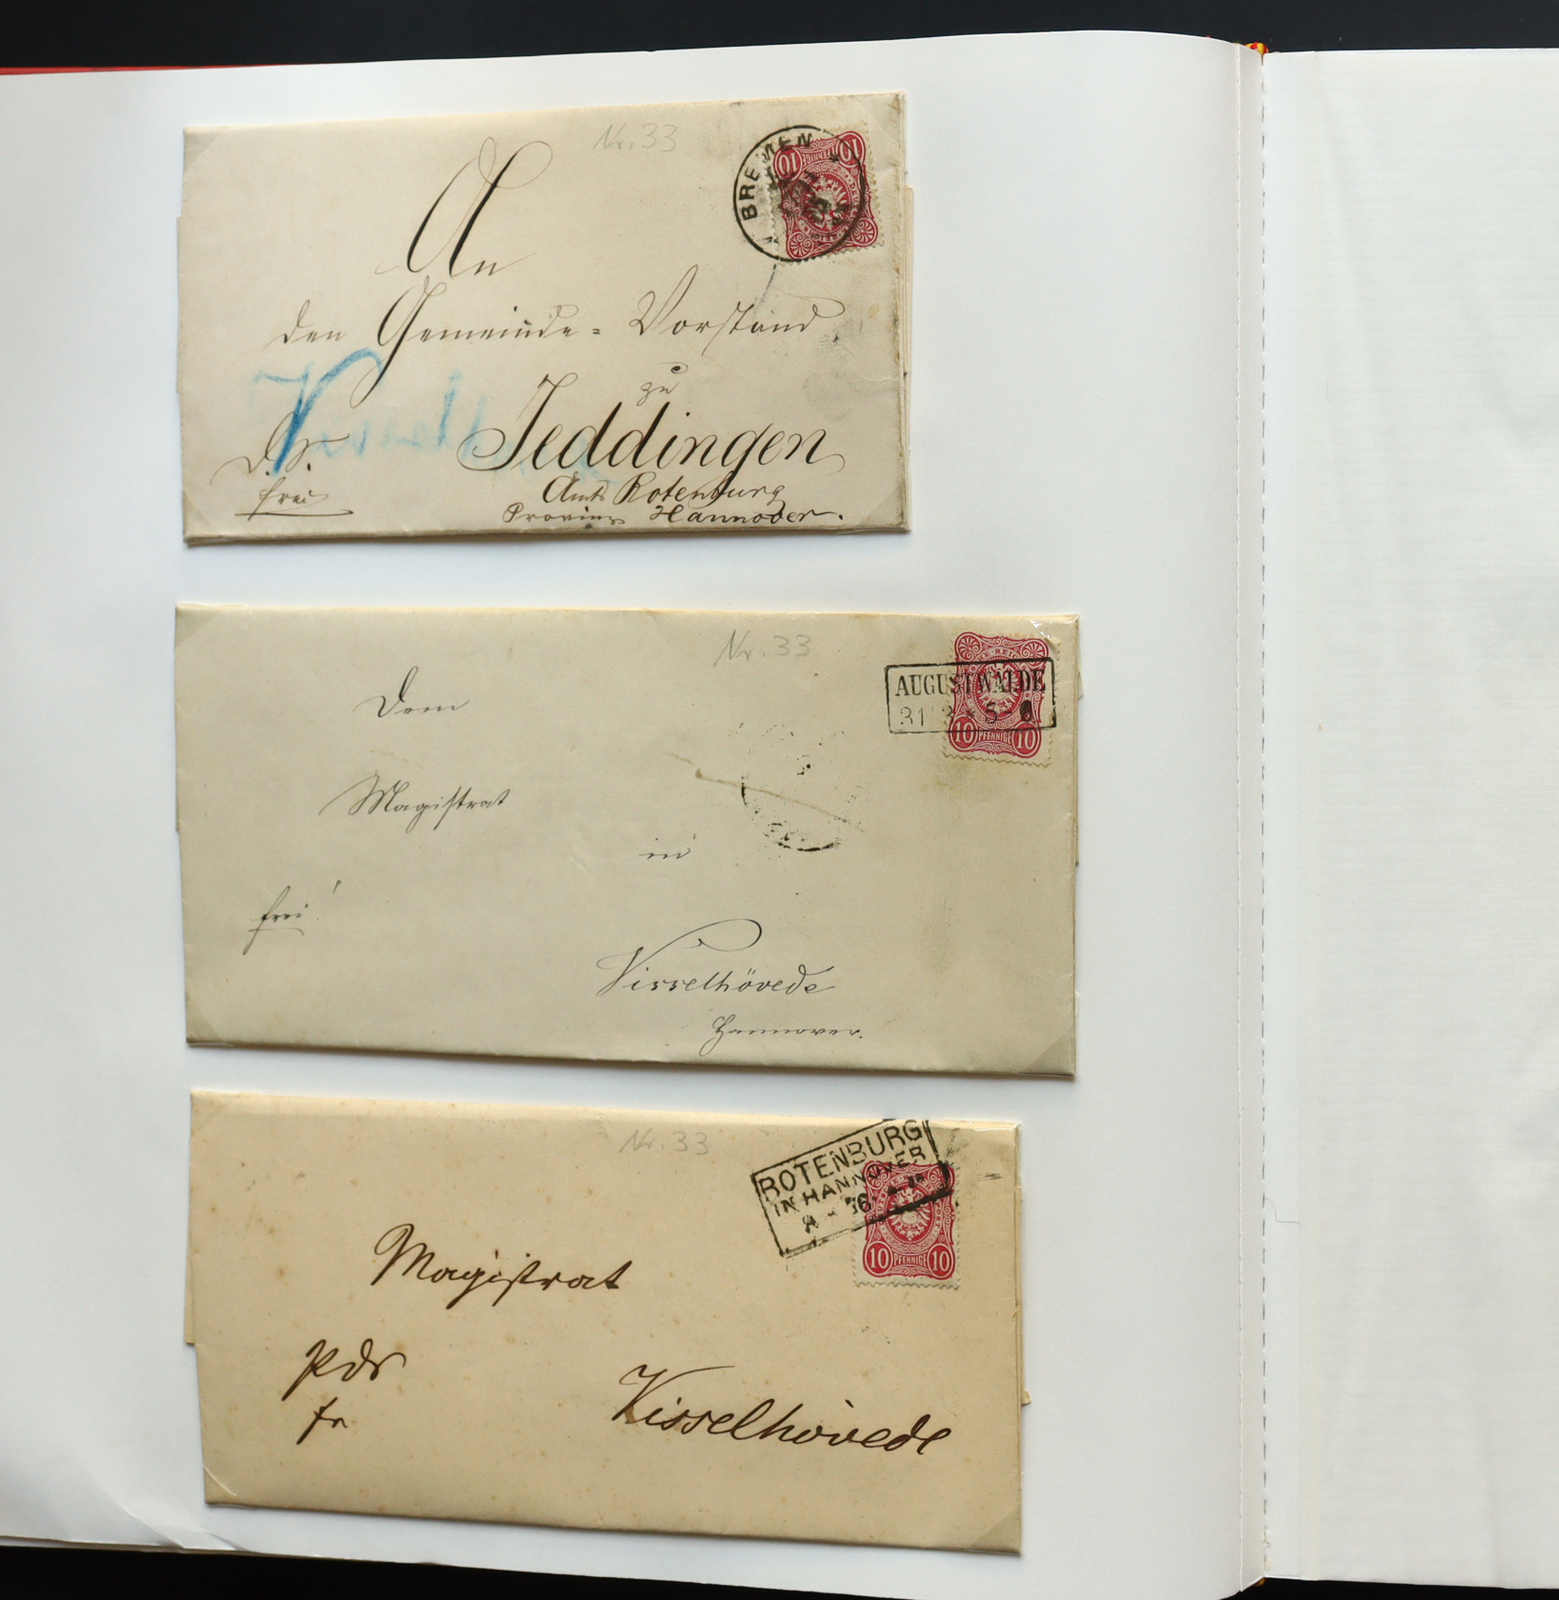 Nr. 33
BREMEN
10 10
An
den Gemeinde-Vorstand
zu
Jeddingen
Amt Rotenburg
Provinz Hannover.
D.S.
frei
Nr. 33
AUGUSTWALDE
31 3 * 5-6
10 PFENNIGE 10
Dem
Magistrat
in
frei!
Visselhövede
Hannover.
Nr. 33
ROTENBURG
IN HANNOVER
10 PFENNIGE 10
Magistrat
pds
fr
Visselhövede